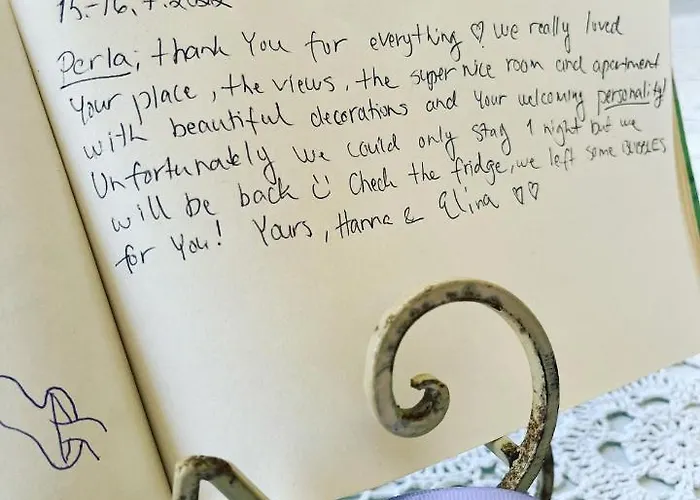 15.-16.7.202
Perla; thank You for everything ♡ we really loved
Your place, the views, the super nice room and apartment
with beautiful decorations and your welcoming personality!
Unfortunately we could only stay 1 night but we
will be back Check the fridge, we left some BUBBLES
for You! Yours, Hanna & Elina ♡♡